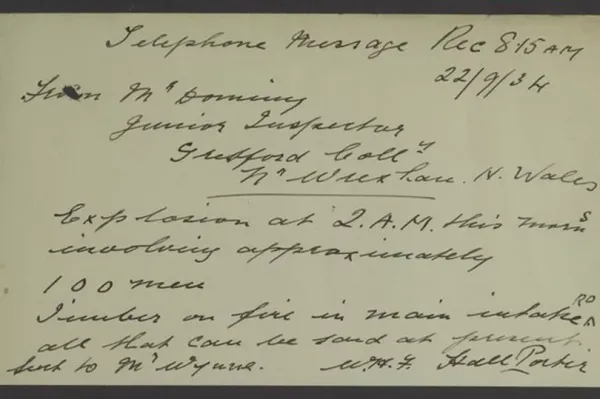 Telephone Message Rec 8.15 AM
22/9/34
From Mr Dominy
Junior Inspector
Gresford Colly
Nr Wrexham. N. Wales
Explosion at 2.A.M. this morng
involving approximately
100 men
Timber on fire in main intake
all that can be said at present
sent to Mr Wynne. W.H.F. Hall Porter